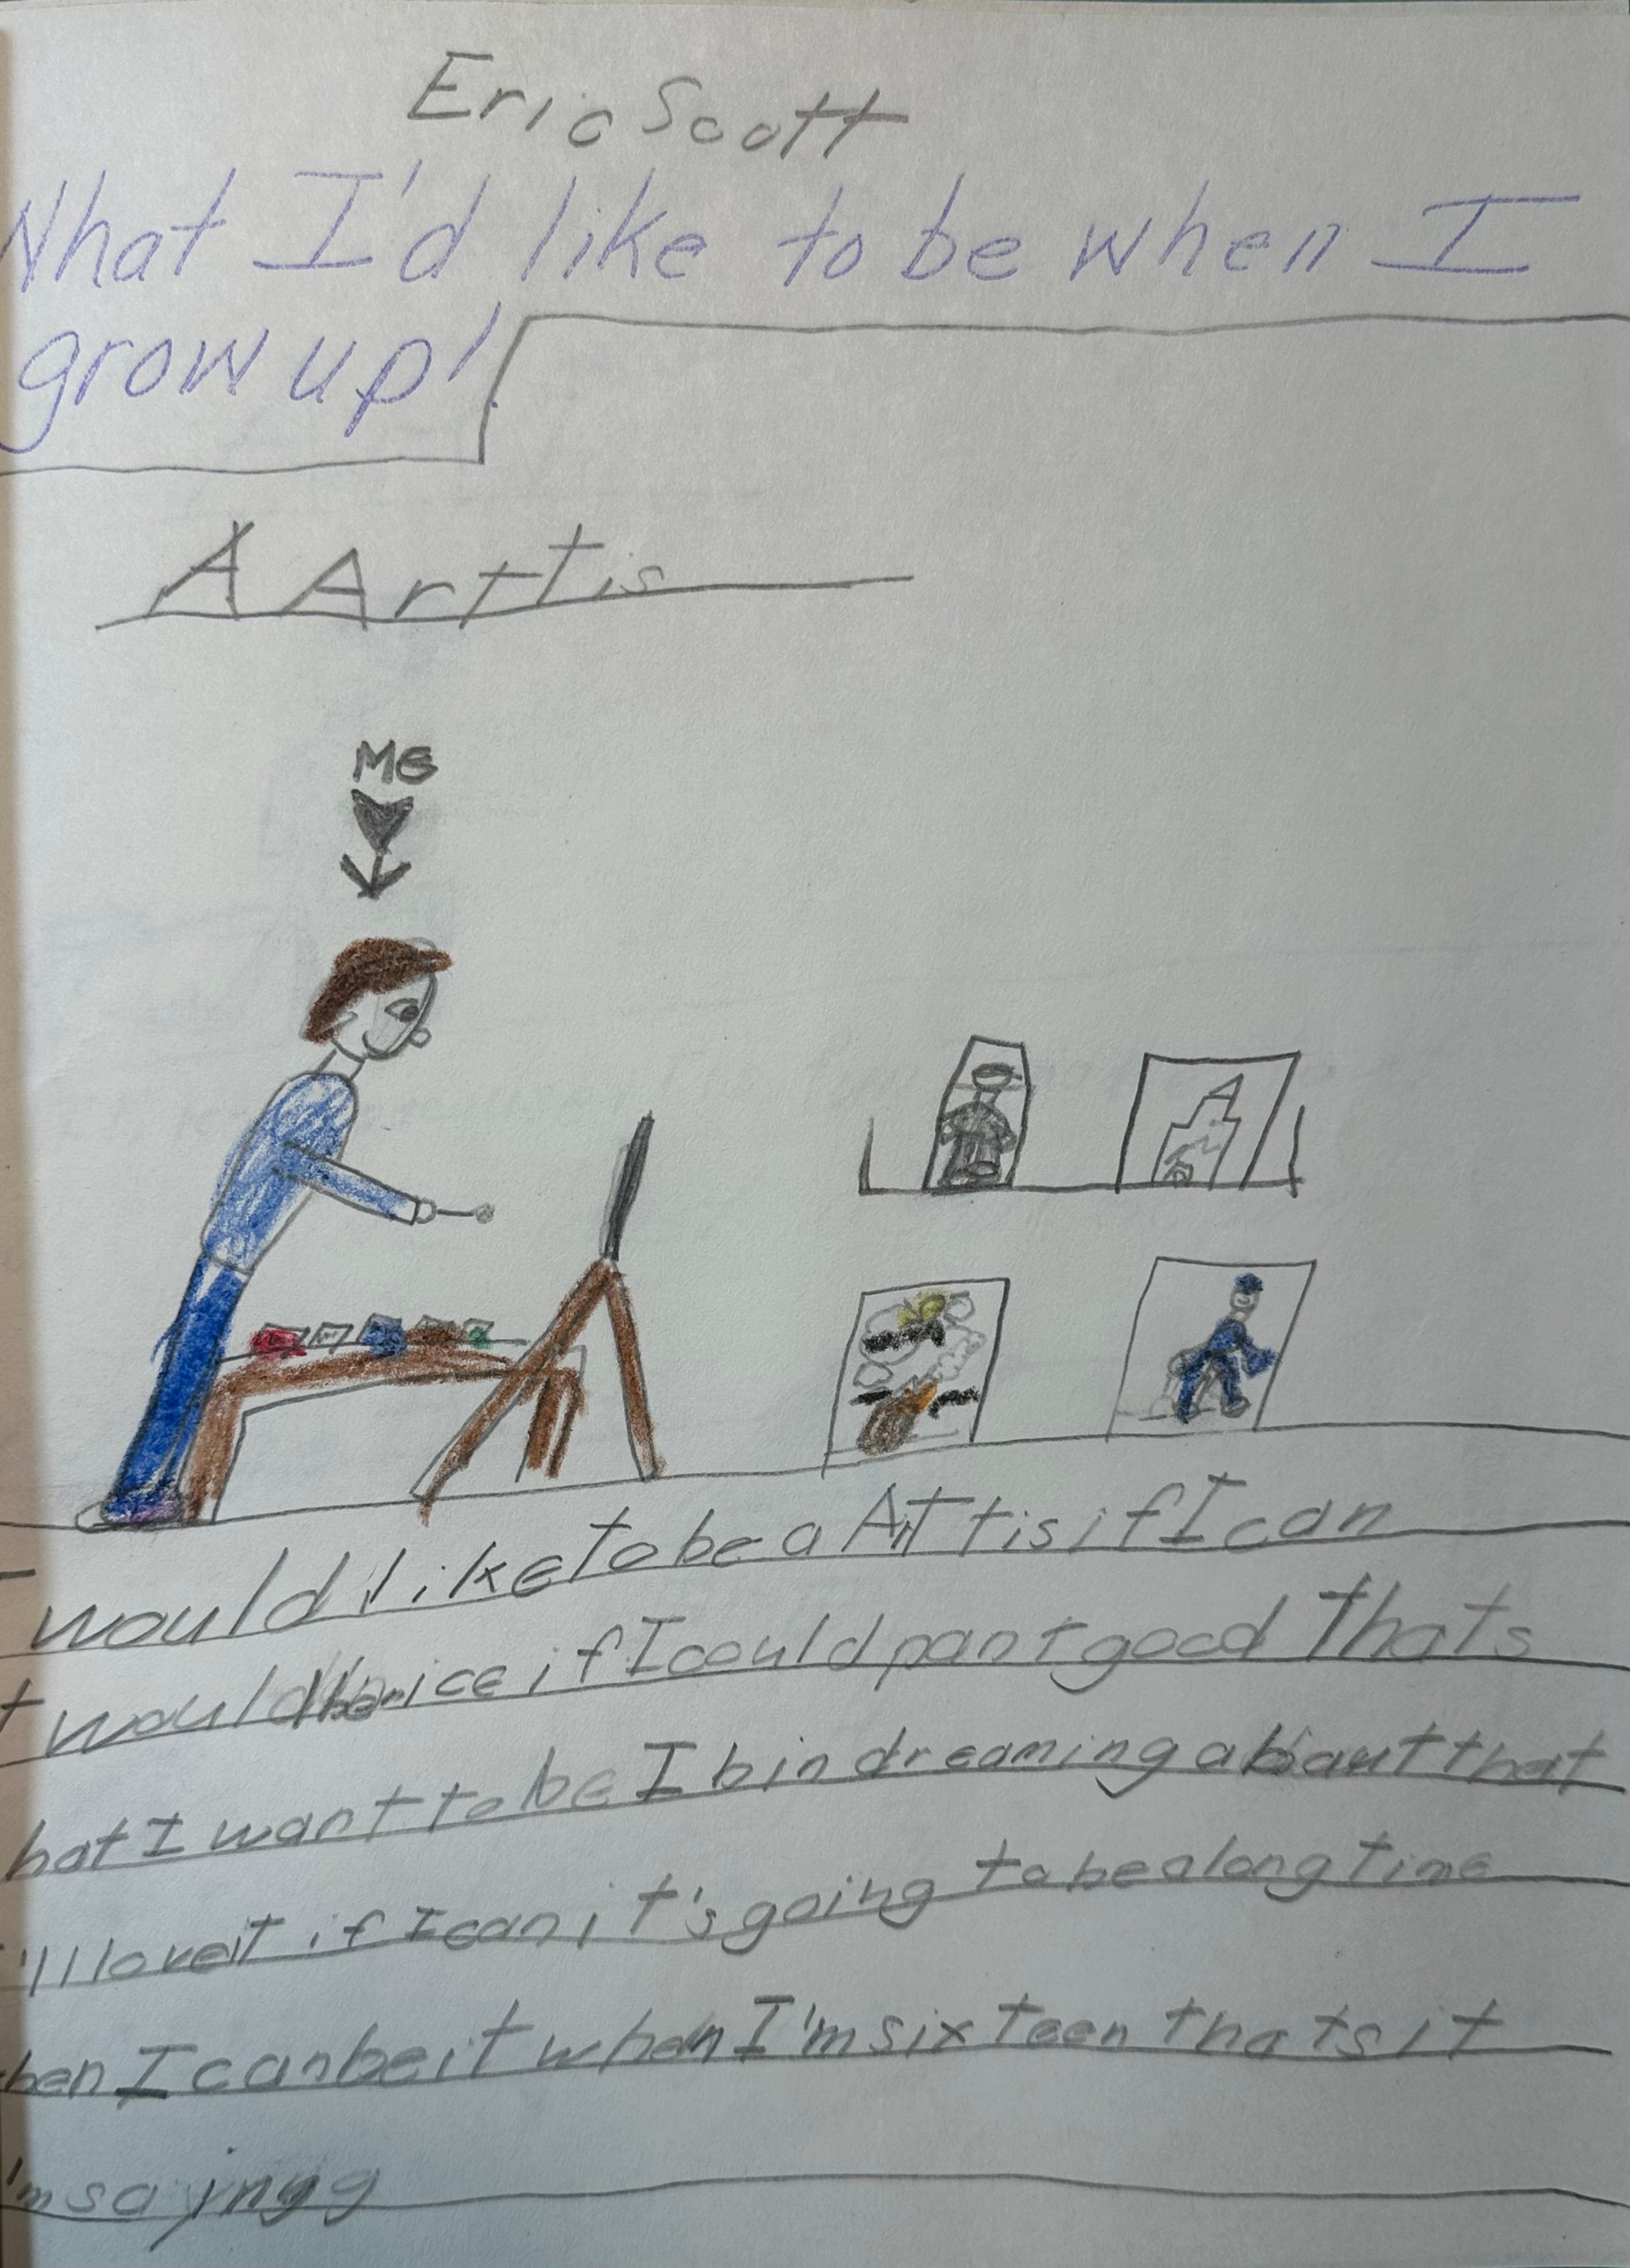 Eric Scott
What I'd like to be when I
grow up!
A Arttis
ME
would like to be a Arttis if I can
t would be nice if I could pant good thats
hat I want to be I bin dreaming abaut that
'll love it if I can it's going to be a long time
hen I can be it when I'm sixteen thats it
'm saying